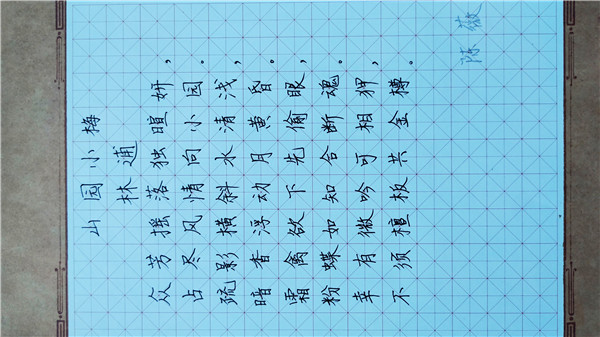 山园小梅
林逋
众芳摇落独暄妍，
占尽风情向小园。
疏影横斜水清浅，
暗香浮动月黄昏。
霜禽欲下先偷眼，
粉蝶如知合断魂。
幸有微吟可相狎，
不须檀板共金樽。
陈薇